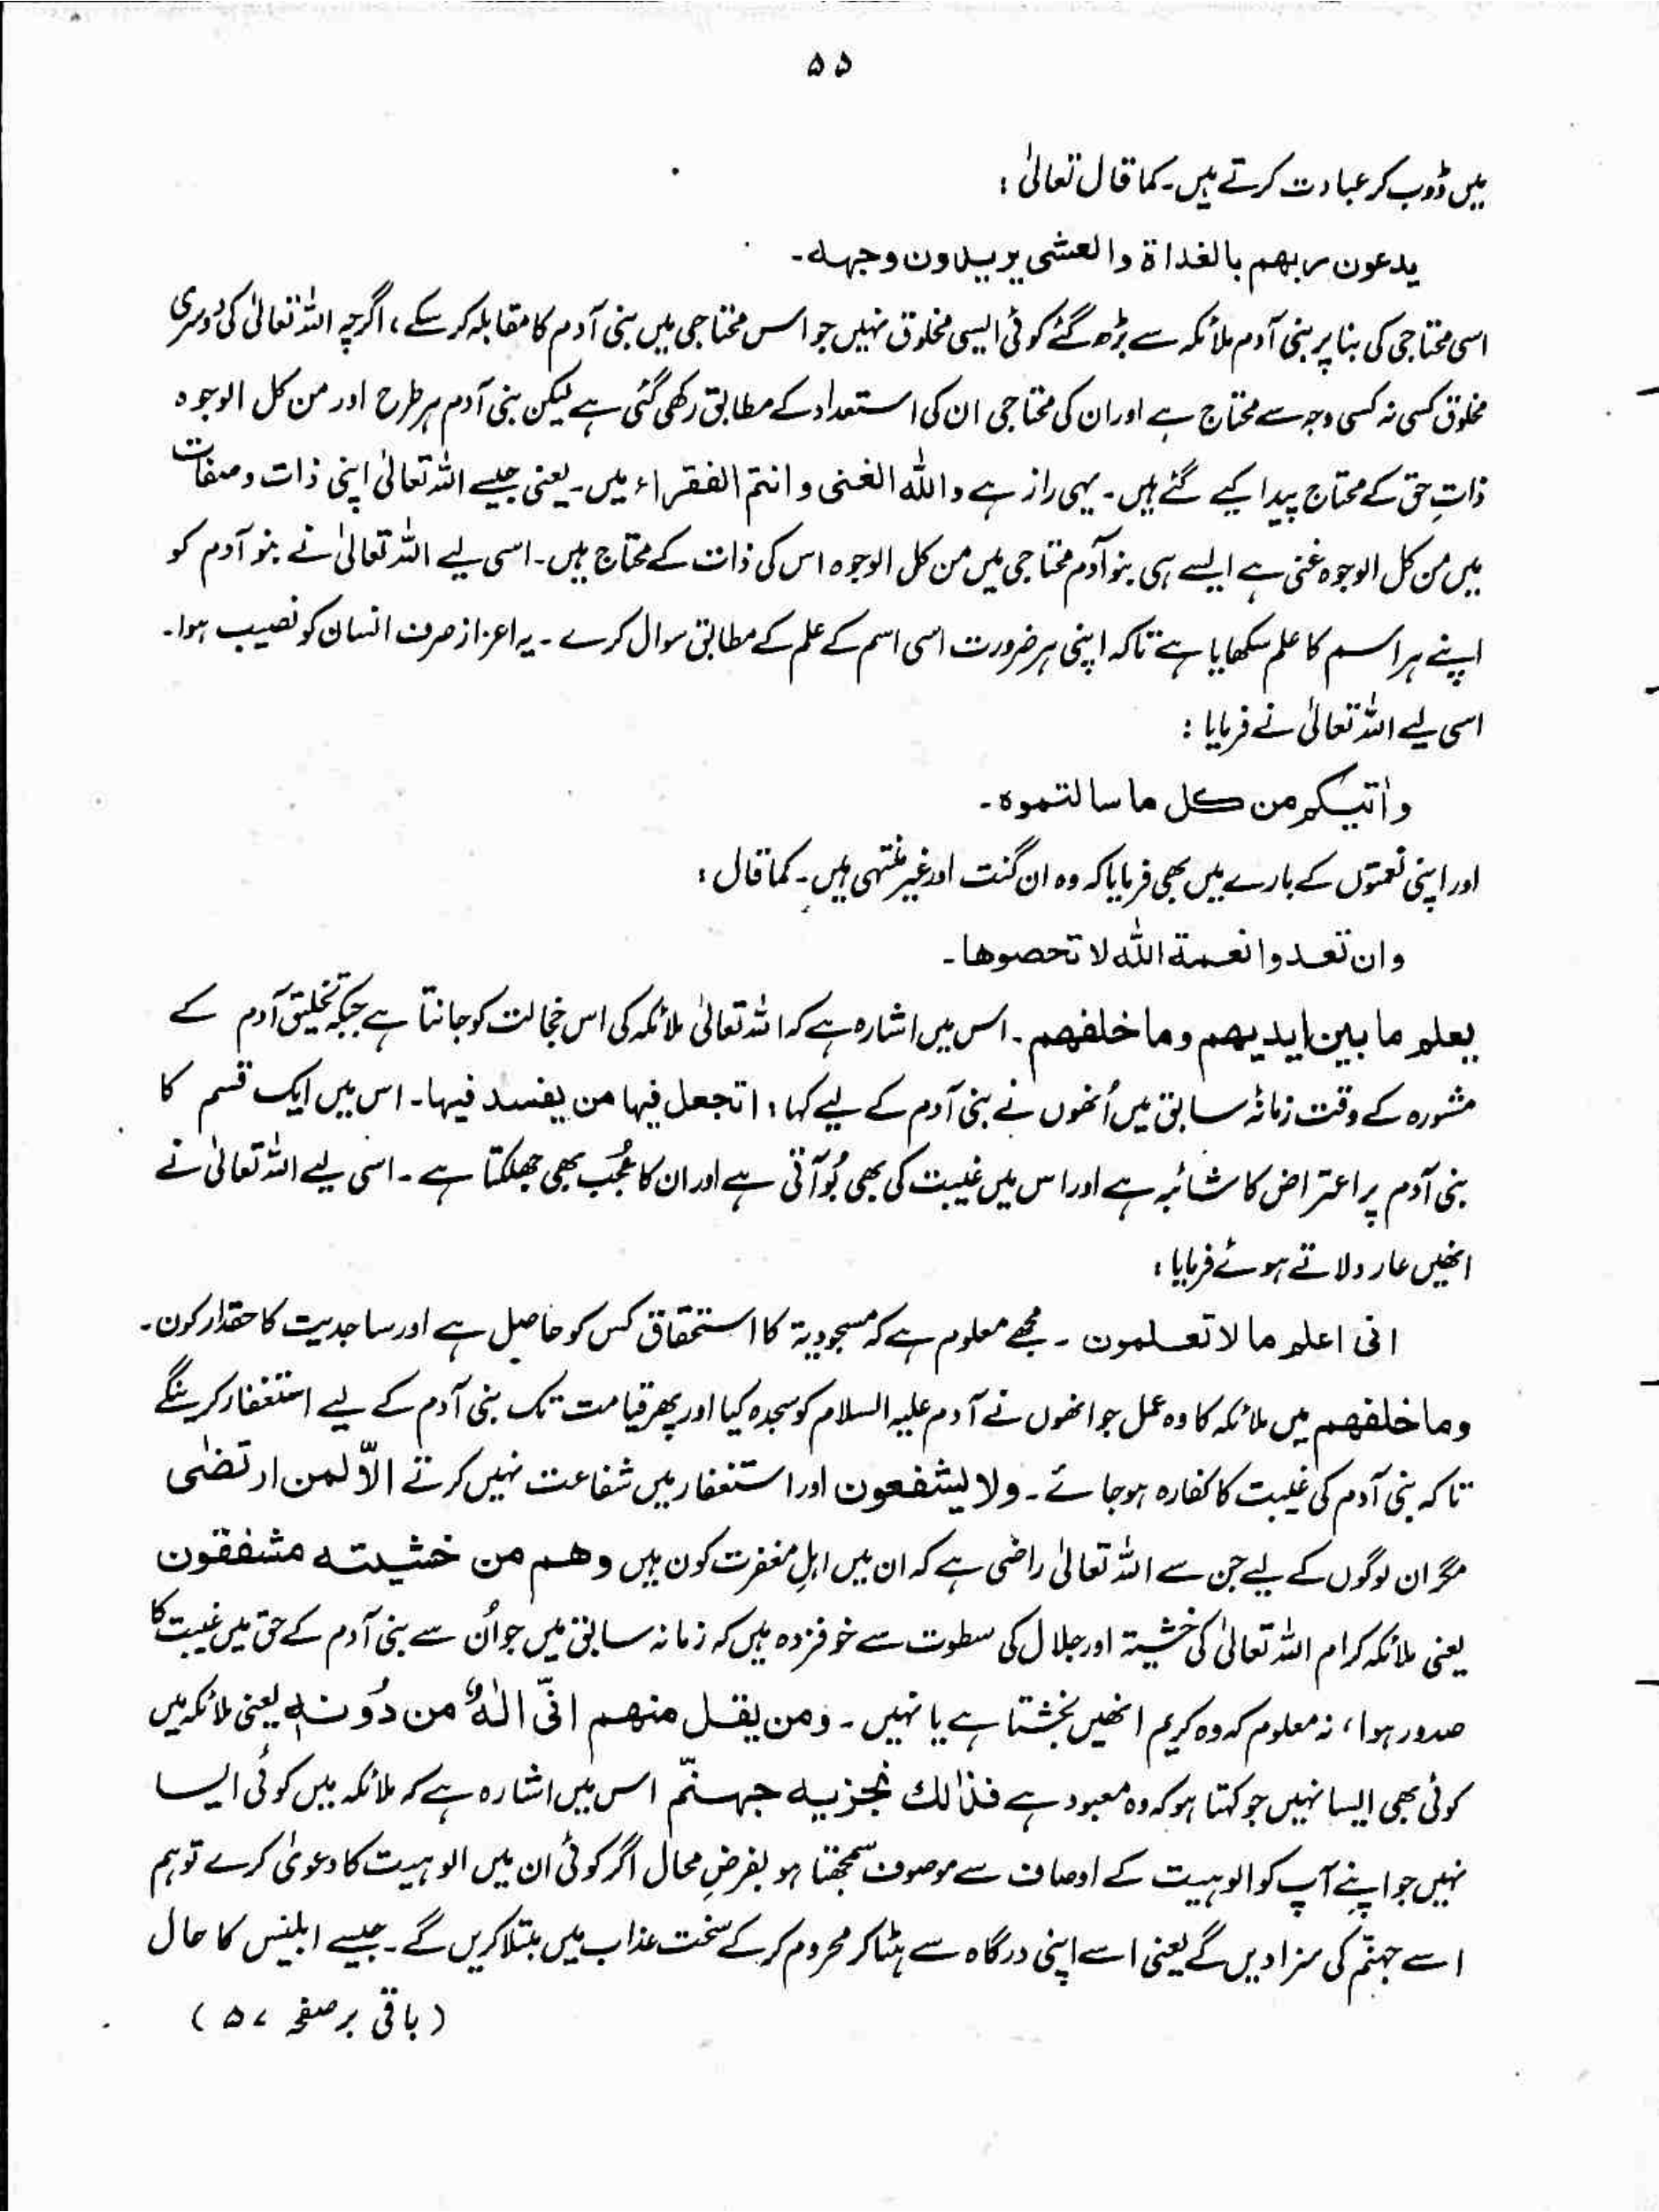 ۵۵
میں ڈوب کر عبادت کرتے ہیں۔ کما قال تعالیٰ :
یدعون ربھم بالغداۃ والعشی یریدون وجہہ۔
اسی محتاجی کی بنا پر بنی آدم ملائکہ سے بڑھ گئے کوئی ایسی مخلوق نہیں جو اس محتاجی میں بنی آدم کا مقابلہ کر سکے، اگرچہ اللہ تعالیٰ کی دوسری
مخلوق کسی نہ کسی وجہ سے محتاج ہے اور ان کی محتاجی ان کی استعداد کے مطابق رکھی گئی ہے لیکن بنی آدم ہر طرح اور من کل الوجوہ
ذاتِ حق کے محتاج پیدا کیے گئے ہیں۔ یہی راز ہے واللہ الغنی و انتم الفقراء میں۔ یعنی جیسے اللہ تعالیٰ اپنی ذات و صفات
میں من کل الوجوہ غنی ہے ایسے ہی بنو آدم محتاجی میں من کل الوجوہ اس کی ذات کے محتاج ہیں۔ اسی لیے اللہ تعالیٰ نے بنو آدم کو
اپنے ہر اسم کا علم سکھایا ہے تاکہ اپنی ہر ضرورت اسی اسم کے علم کے مطابق سوال کرے۔ یہ اعزاز صرف انسان کو نصیب ہوا۔
اسی لیے اللہ تعالیٰ نے فرمایا :
واٰتیکم من کل ما سالتموہ۔
اور اپنی نعمتوں کے بارے میں بھی فرمایا کہ وہ ان گنت اور غیر منتہی ہیں۔ کما قال :
وان تعدوا نعمۃ اللہ لا تحصوھا۔
یعلم ما بین ایدیھم وما خلفھم۔ اس میں اشارہ ہے کہ اللہ تعالیٰ ملائکہ کی اس خجالت کو جانتا ہے جبکہ تخلیقِ آدم کے
مشورہ کے وقت زمانۂ سابق میں اُنھوں نے بنی آدم کے لیے کہا : اتجعل فیہا من یفسد فیہا۔ اس میں ایک قسم کا
بنی آدم پر اعتراض کا شائبہ ہے اور اس میں غیبت کی بھی بُو آتی ہے اور ان کا عُجب بھی جھلکتا ہے۔ اسی لیے اللہ تعالیٰ نے
انھیں عار دلاتے ہوئے فرمایا :
انی اعلم ما لا تعلمون۔ مجھے معلوم ہے کہ مسجودیۃ کا استحقاق کس کو حاصل ہے اور ساجدیت کا حقدار کون۔
وما خلفھم میں ملائکہ کا وہ عمل جو انھوں نے آدم علیہ السلام کو سجدہ کیا اور پھر قیامت تک بنی آدم کے لیے استغفار کرینگے
تاکہ بنی آدم کی غیبت کا کفارہ ہو جائے۔ ولا یشفعون اور استغفار میں شفاعت نہیں کرتے الّا لمن ارتضٰی
مگر ان لوگوں کے لیے جن سے اللہ تعالیٰ راضی ہے کہ ان میں اہلِ مغفرت کون ہیں وھم من خشیتہ مشفقون
یعنی ملائکہ کرام اللہ تعالیٰ کی خشیۃ اور جلال کی سطوت سے خوفزدہ ہیں کہ زمانہ سابق میں جو اُن سے بنی آدم کے حق میں غیبت کا
صدور ہوا، نہ معلوم کہ وہ کریم انھیں بخشتا ہے یا نہیں۔ ومن یقل منھم انّی الٰہٌ من دُونہٖ یعنی ملائکہ میں
کوئی بھی ایسا نہیں جو کہتا ہو کہ وہ معبود ہے فذٰلک نجزیہ جہنّم اس میں اشارہ ہے کہ ملائکہ میں کوئی ایسا
نہیں جو اپنے آپ کو الوہیت کے اوصاف سے موصوف سمجھتا ہو بفرضِ محال اگر کوئی ان میں الوہیت کا دعویٰ کرے تو ہم
اسے جہنّم کی سزا دیں گے یعنی اسے اپنی درگاہ سے ہٹا کر محروم کر کے سخت عذاب میں مبتلا کریں گے۔ جیسے ابلیس کا حال
(باقی بر صفحہ ۵۷)